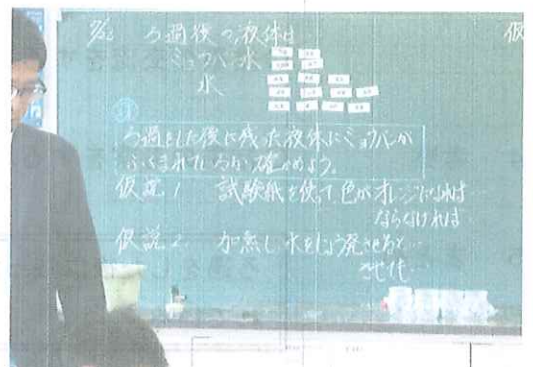 ろ過後の液体は
ミョウバン水
水
ろ過をした後に残った液体にミョウバンが
ふくまれているか確かめよう。
仮説1 試験紙を使って色がオレンジになれば
ならなければ
仮説2 加熱し水をじょう発させると…
させて…
仮